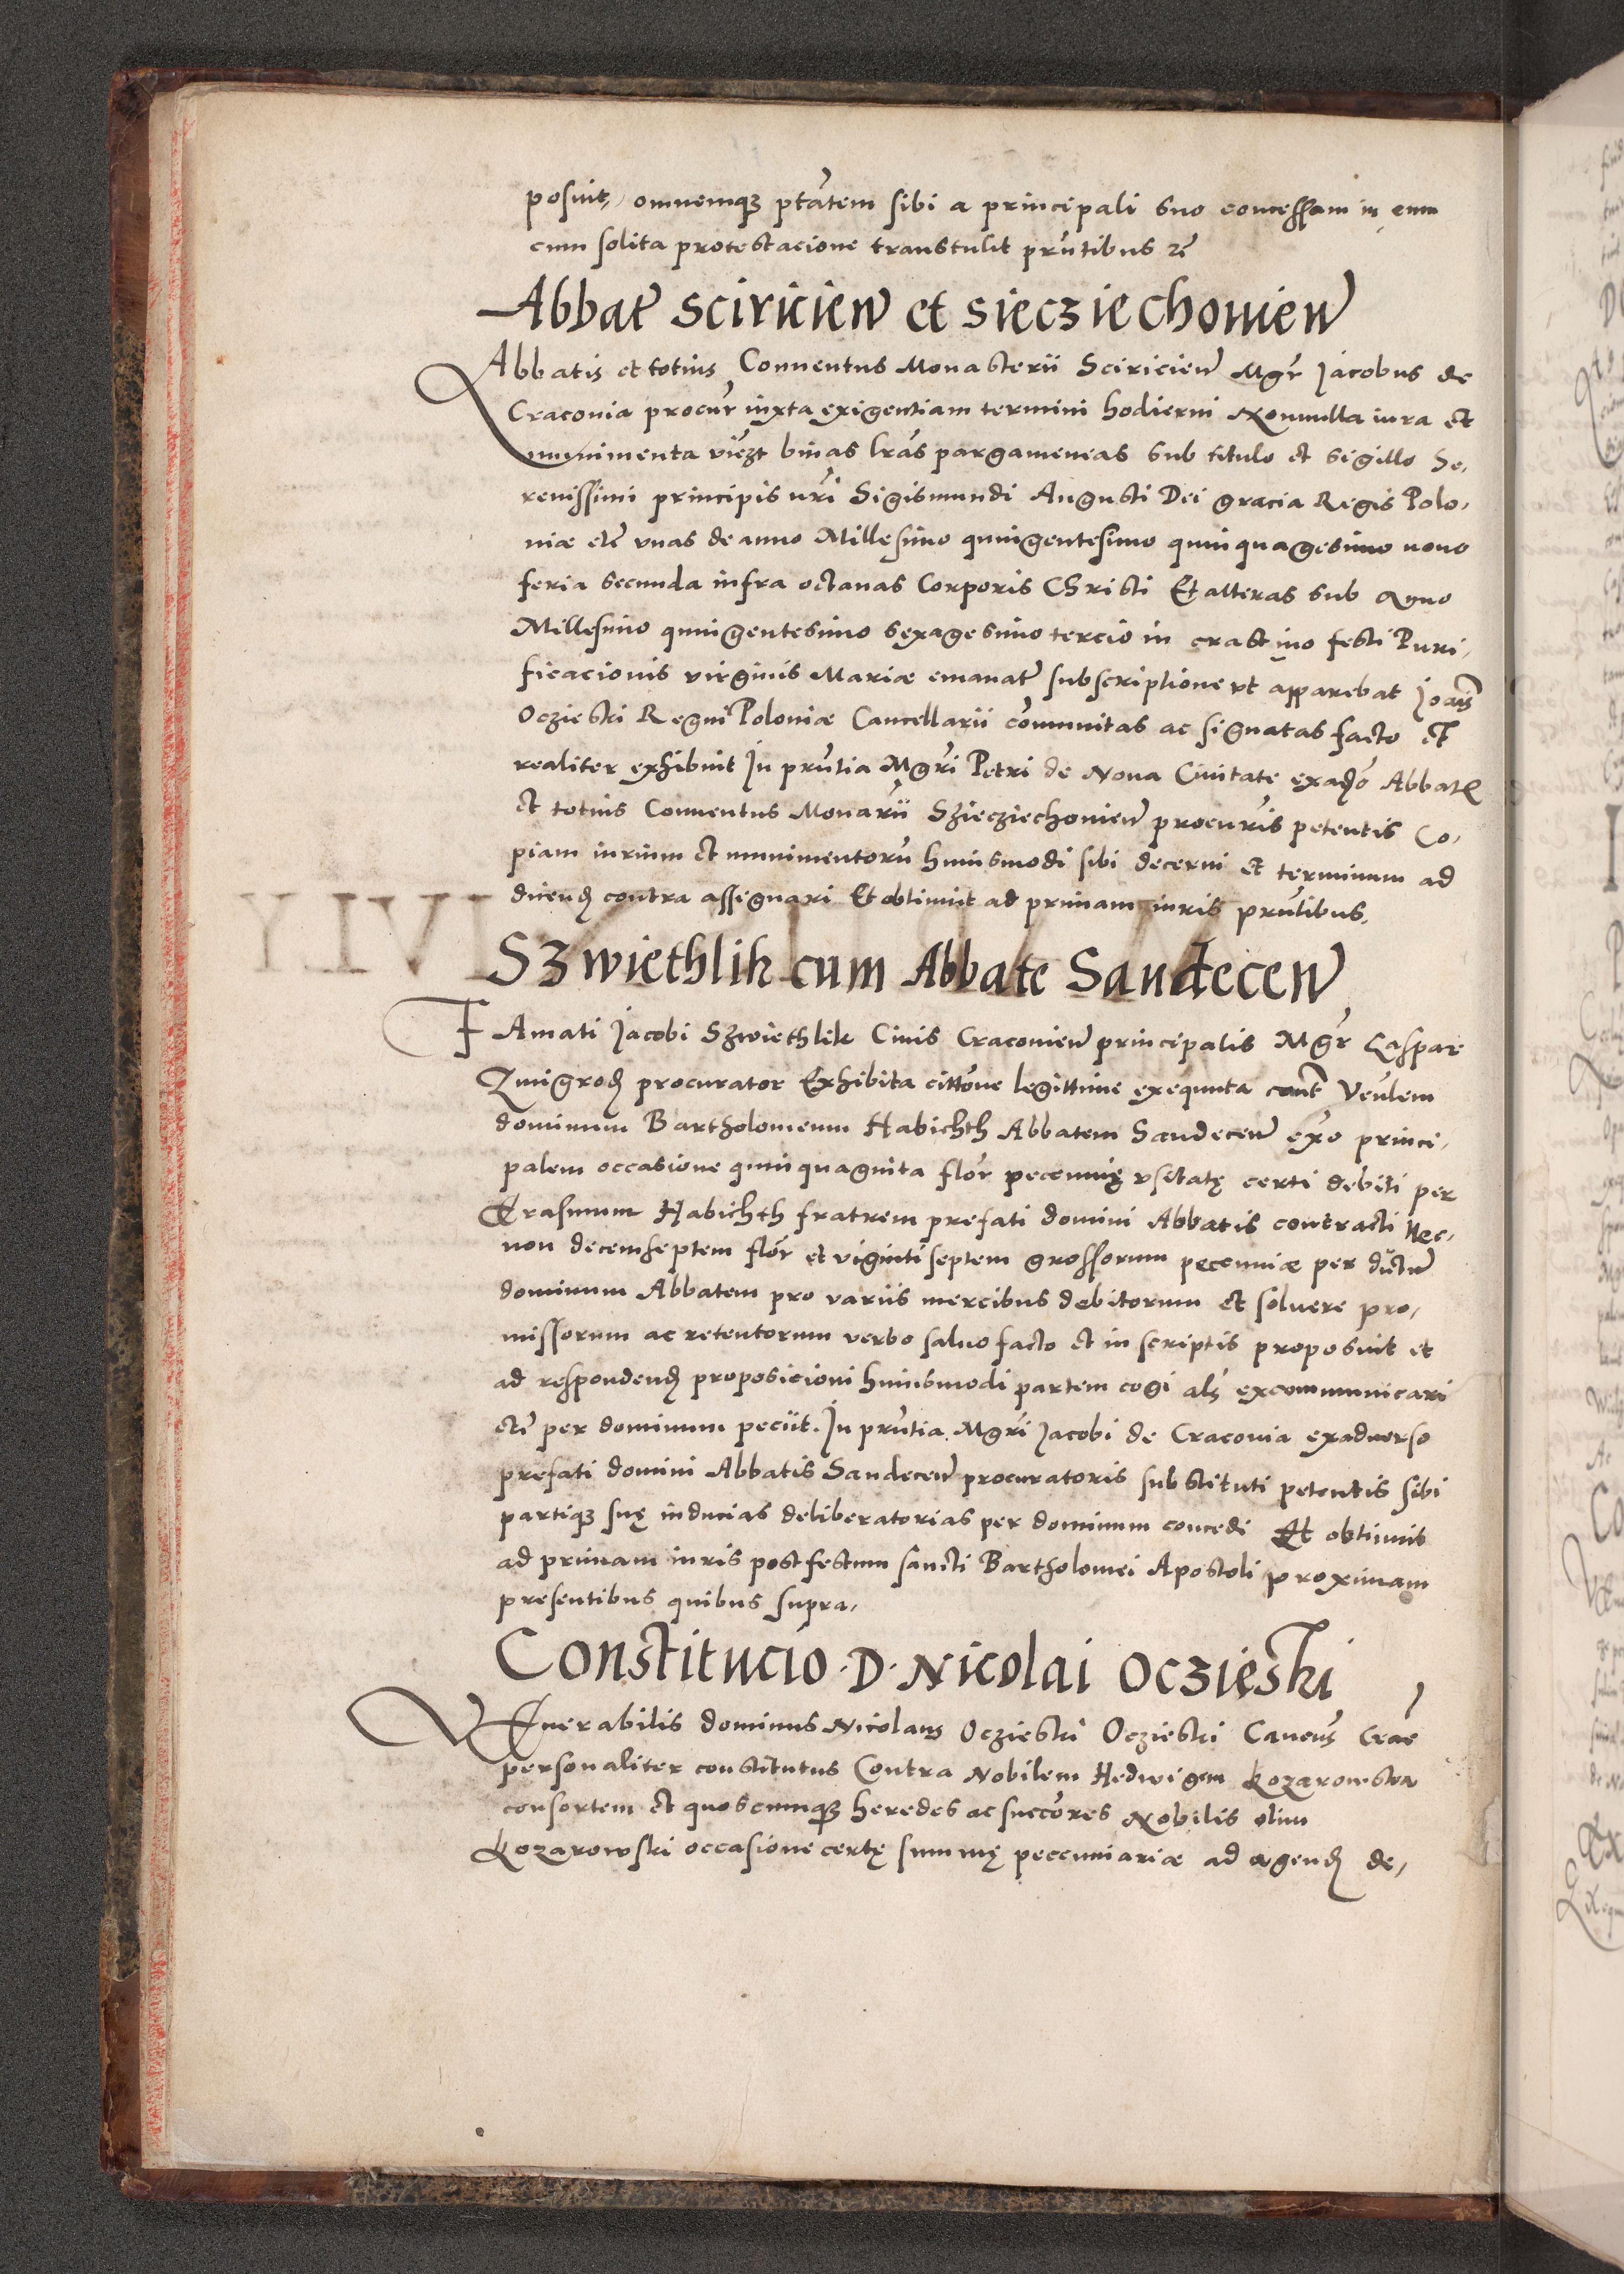 posuit, omnemq₃ ptãtem sibi a principali suo concessam in eum
cum solita protestacione transtulit prñtibus ꝛc̃
Abbat̃ Sciricień et Siecziechowień
Abbatis et totius Conventus Monasterii Sciricień Mgr̃ Jacobus de
Cracovia procur̃ iuxta exigentiam termini hodierni Nonnulla iura et
munimenta videlzt binas lrãs pargameneas sub titulo et sigillo Se,
renissimi principis nrĩ Sigismundi Augusti Dei gracia Regis Polo,
niæ etc̃ vnas de anno Millesimo quingentesimo quinquagesimo nono
feria secunda infra octauas Corporis Christi Et alteras sub Anno
Millesimo quingentesimo sexagesimo tercio in crastino festi Puri,
ficacionis virginis Mariæ emanat̃ subscriptione vt apparebat Joañis
Oczieski Regni Poloniæ Cancellarii cõmunitas ac signatas facto et
realiter exhibuit In prñtia Mgrĩ Petri de Noua Ciuitate exadṽo Abbatis
et totius Conuentus Monarii Szieczechowień procurĩs petentis Co,
piam iurium et munimentorũ huiusmodi sibi decerni et terminum ad
dicend̃ contra assignari Et obtinuit ad primam iuris prñtibus.
Szwiethlik cum Abbate Sandeceń
FAmati Jacobi Szwiethlik Ciuis Cracouień principalis Mgr̃ Caspar
Zmigrod̃ procurator Exhibita cittõne legittime exequuta cont̃ Venlem
dominum Bartholomeum Habichth Abbatem Sandeceń exṽo princi,
palem occasione quinquaginta flor̃ pecunię vsitatę certi debiti per
Erasmum Habichth fratrem prefati domini Abbatis contracti Nec,
non decemseptem flor̃ et viginti septem grossorum pecuniæ per dictũ
dominum Abbatem pro variis mercibus debitorum et soluere pro,
missorum ac retentorum verbo saluo facto et in scriptis proposuit et
ad respondend̃ proposicioni huiusmodi partem cogi als̃ excommunicari
etc̃ per dominum peciit. In prñtia Mgrĩ Jacobi de Cracouia exaduerso
prefati domini Abbatis Sandeceń procuratoris substituti petentis sibi
partiq₃ suę inducias deliberatorias per dominum concedi Et obtinuit
ad primam iuris post festum sancti Bartholomei Apostoli proximam
presentibus quibus supra,
Constitucio D. Nicolai Oczieski
VEnerabilis dominus Nicolaus Oczieski Oczieski Canoñs Crac̃
personaliter constitutus Contra Nobilem Hedwigem Kozarowska
consortem et quoscumq₃ heredes ac succõres Nobilis olim
Kozarowski occasione certę summę peccuniariæ ad agend̃ de,